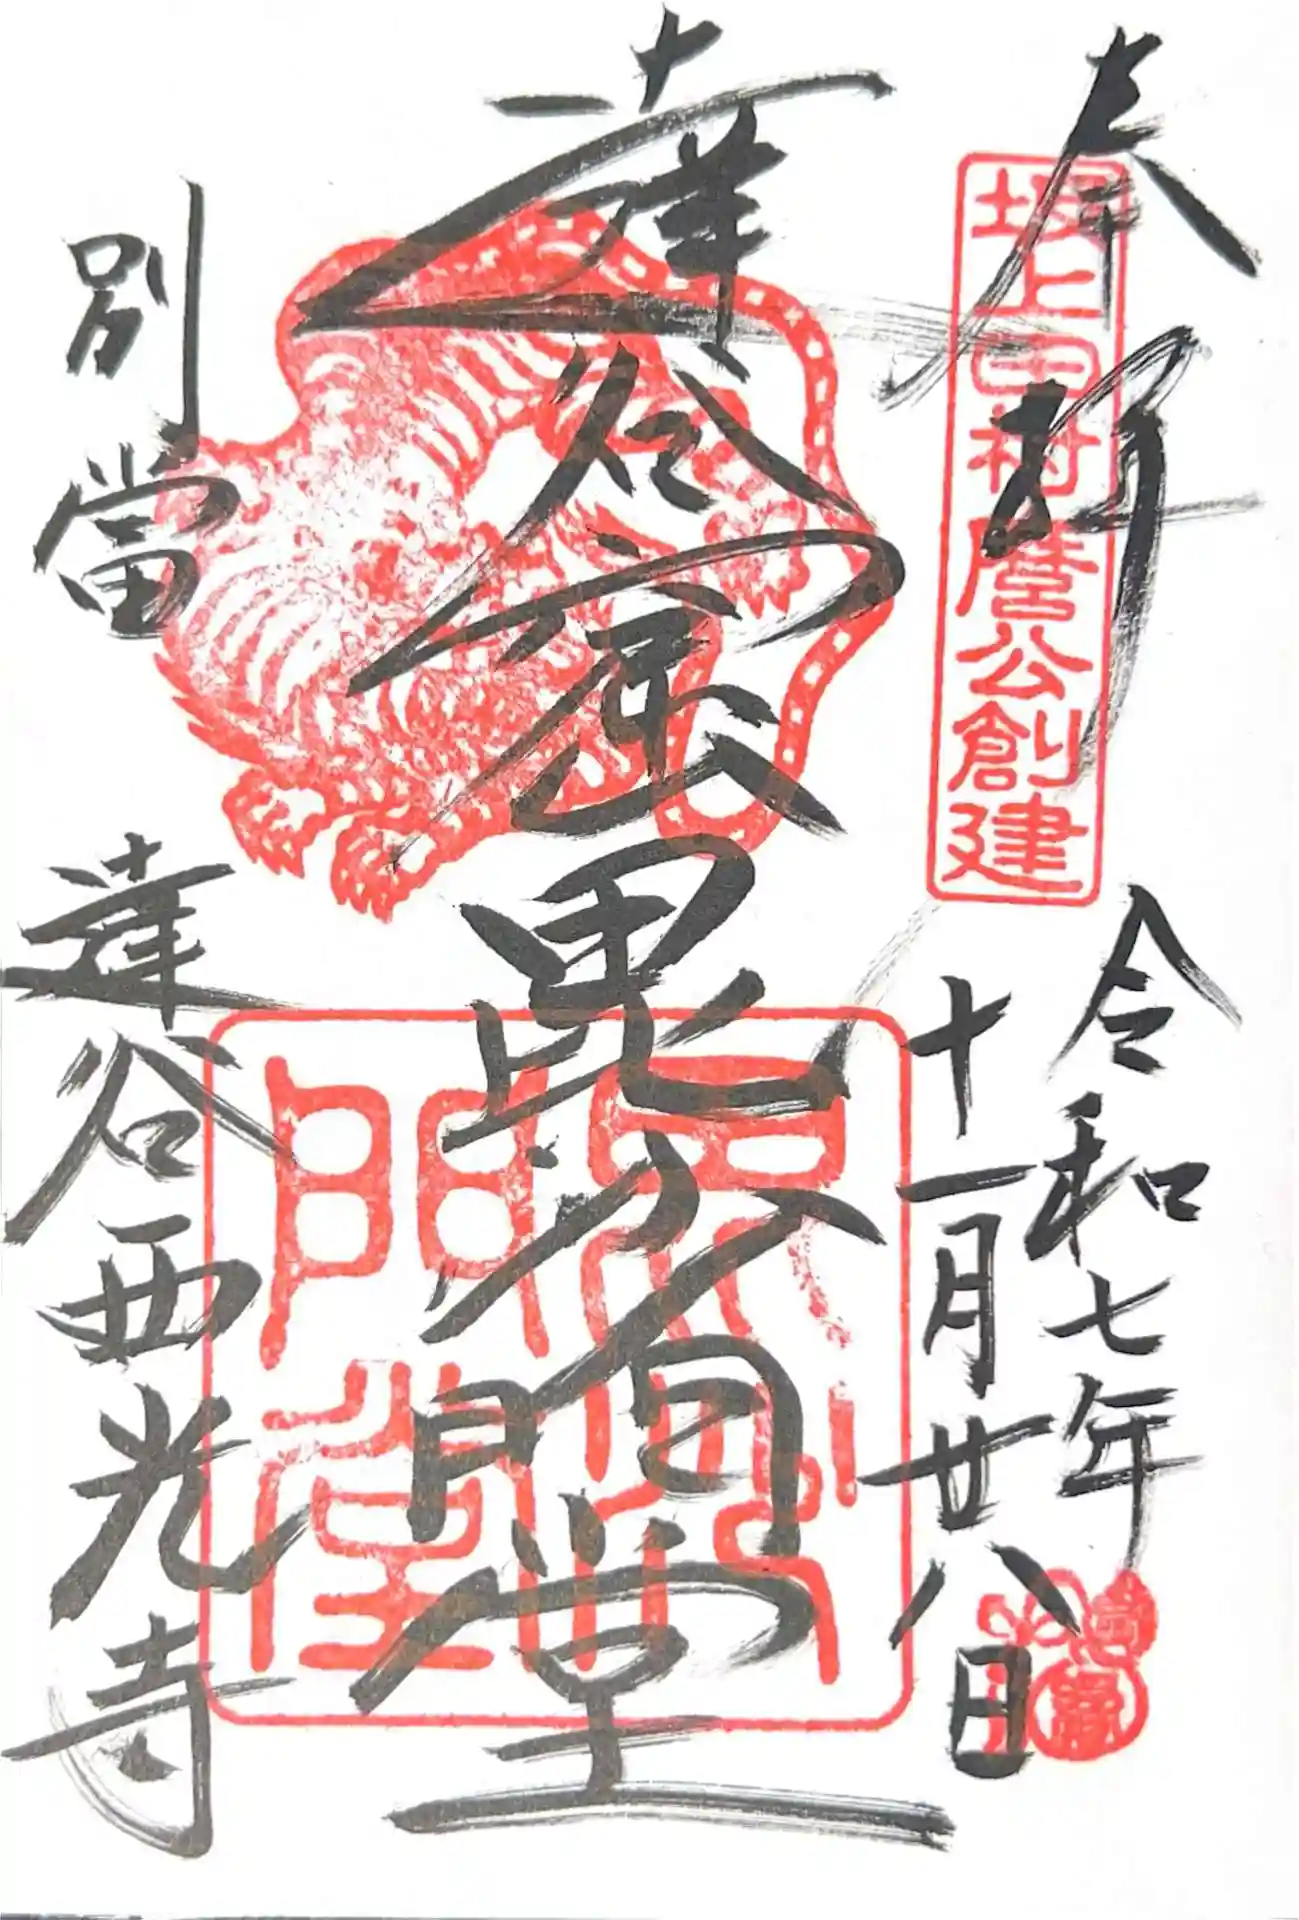 奉拝
坂上田村麿公創建
令和七年
十一月廿八日
達谷窟毘沙門堂
別當
達谷西光寺